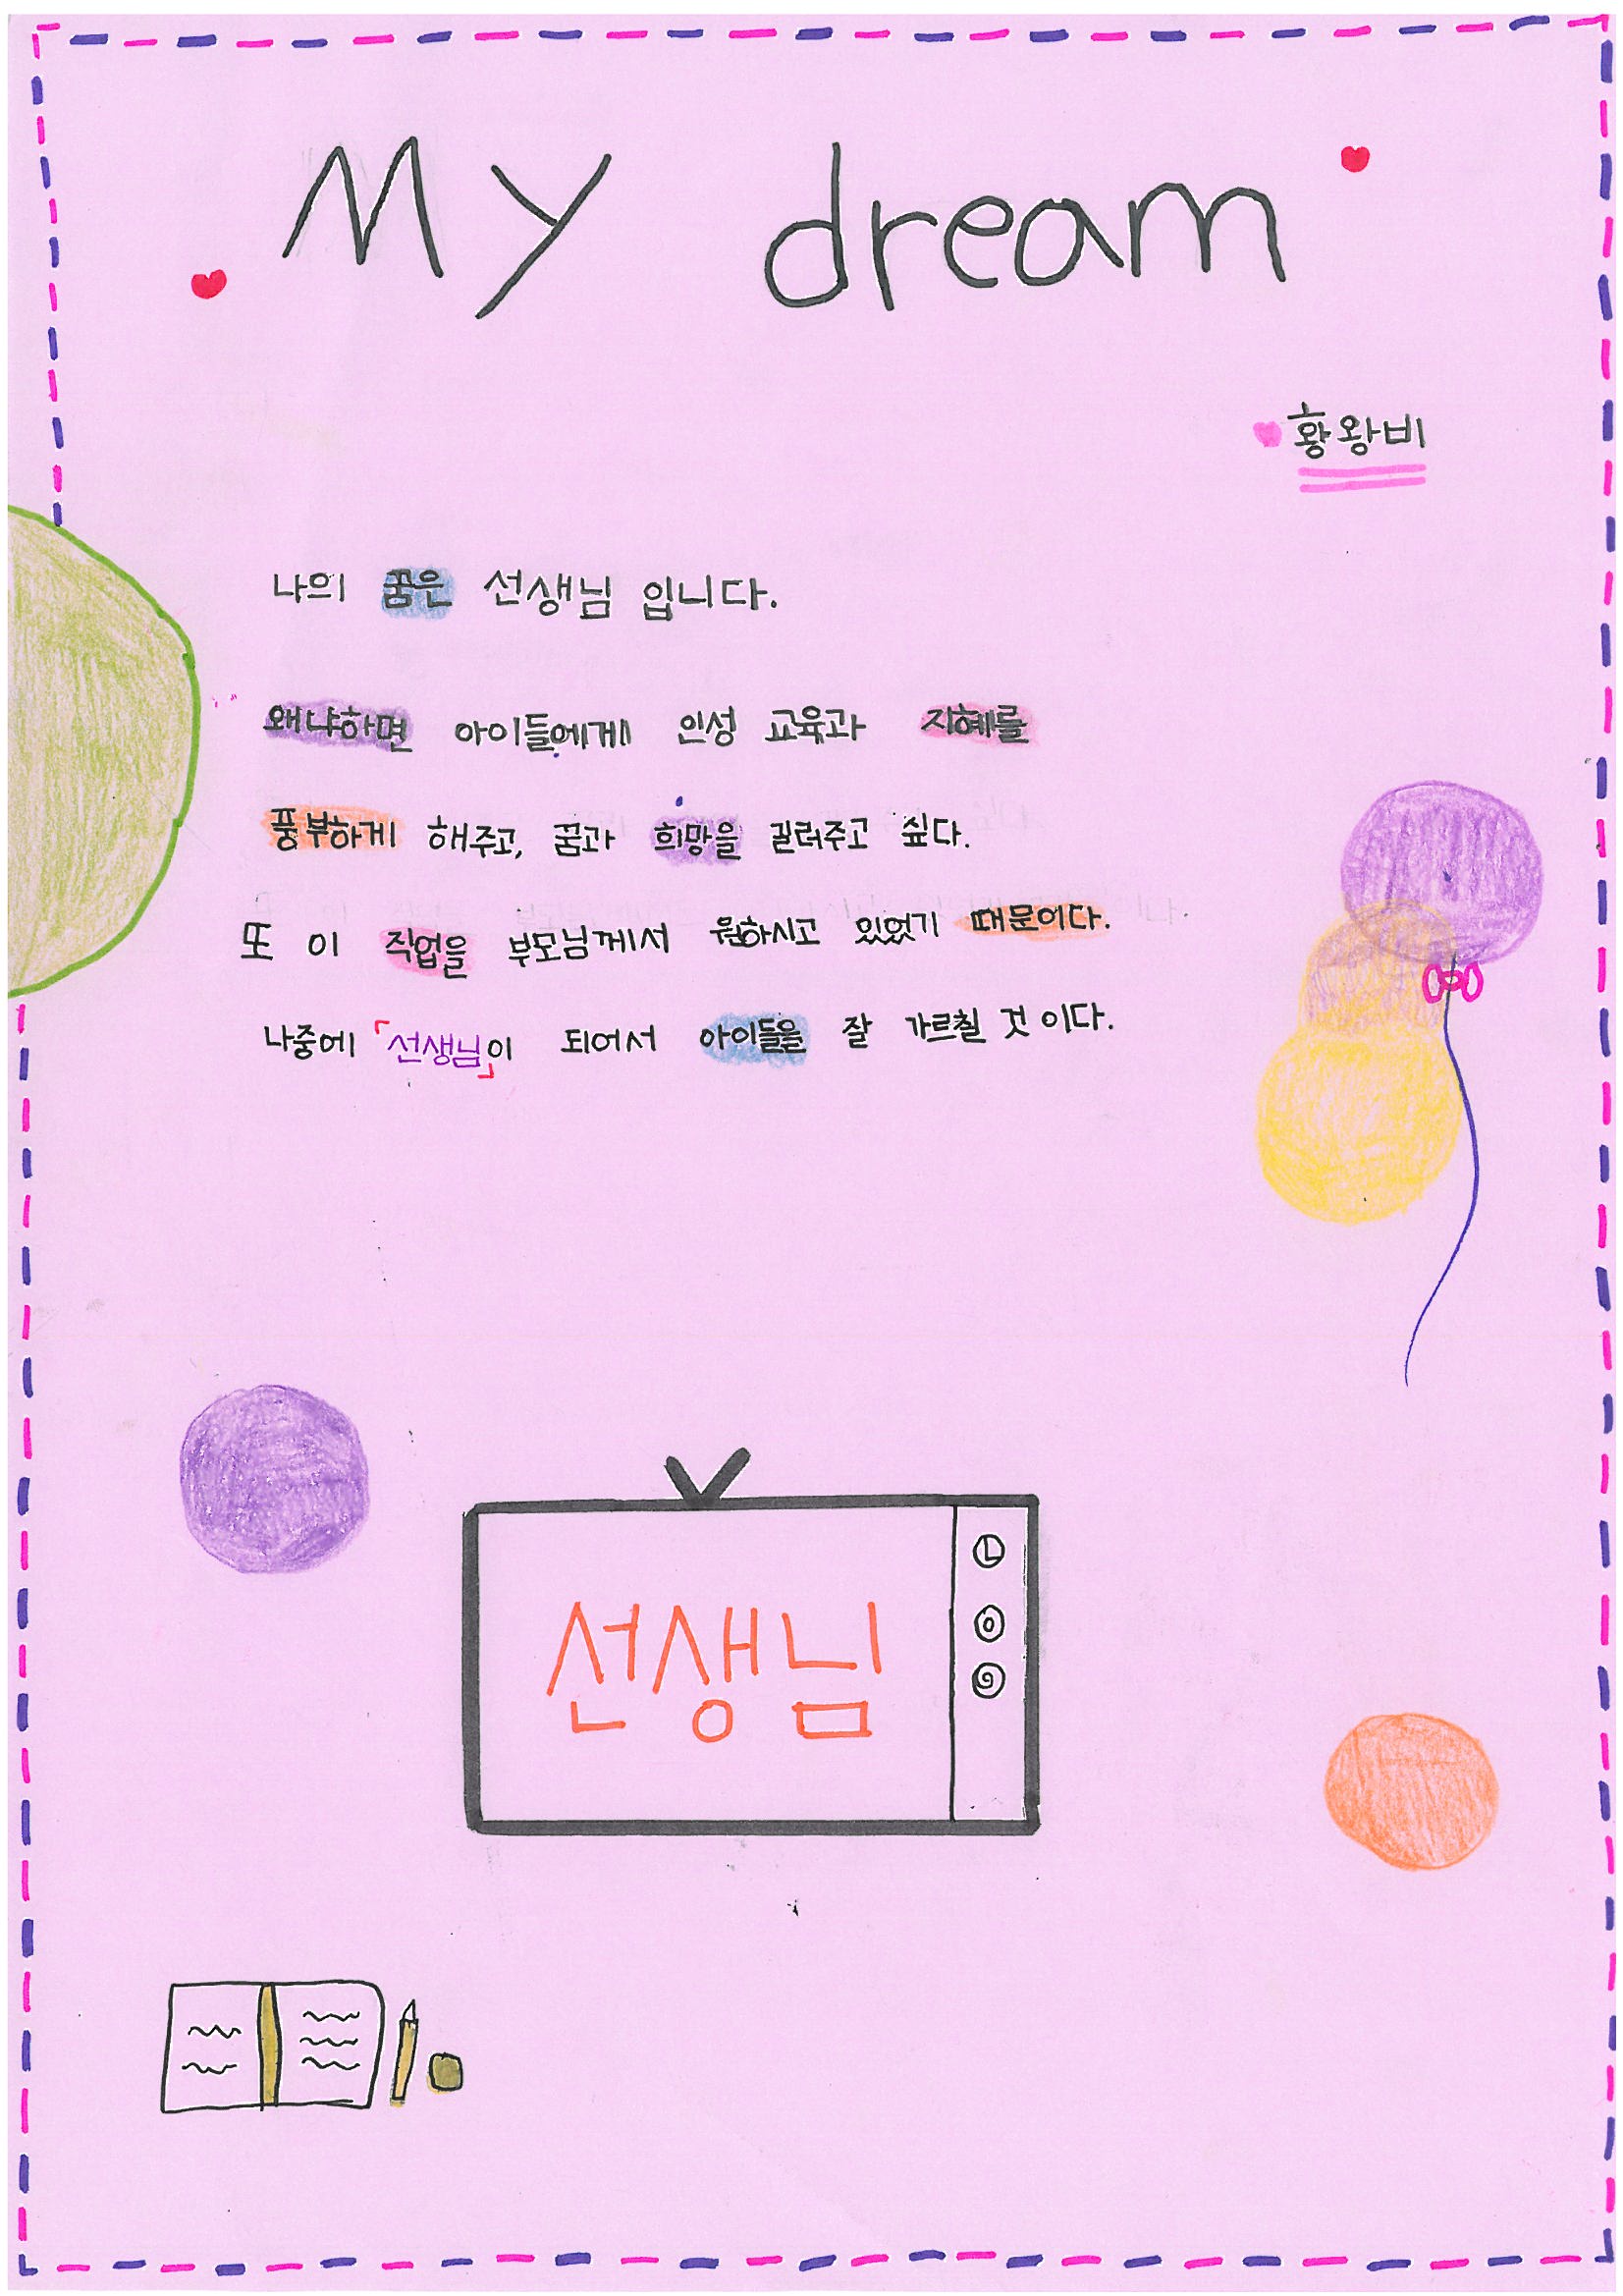 My dream
황왕비
나의 꿈은 선생님 입니다.
왜냐하면 아이들에게 인성 교육과 지혜를
풍부하게 해주고, 꿈과 희망을 길러주고 싶다.
또 이 직업을 부모님께서 원하시고 있었기 때문이다.
나중에 「선생님」이 되어서 아이들을 잘 가르칠 것 이다.
선생님